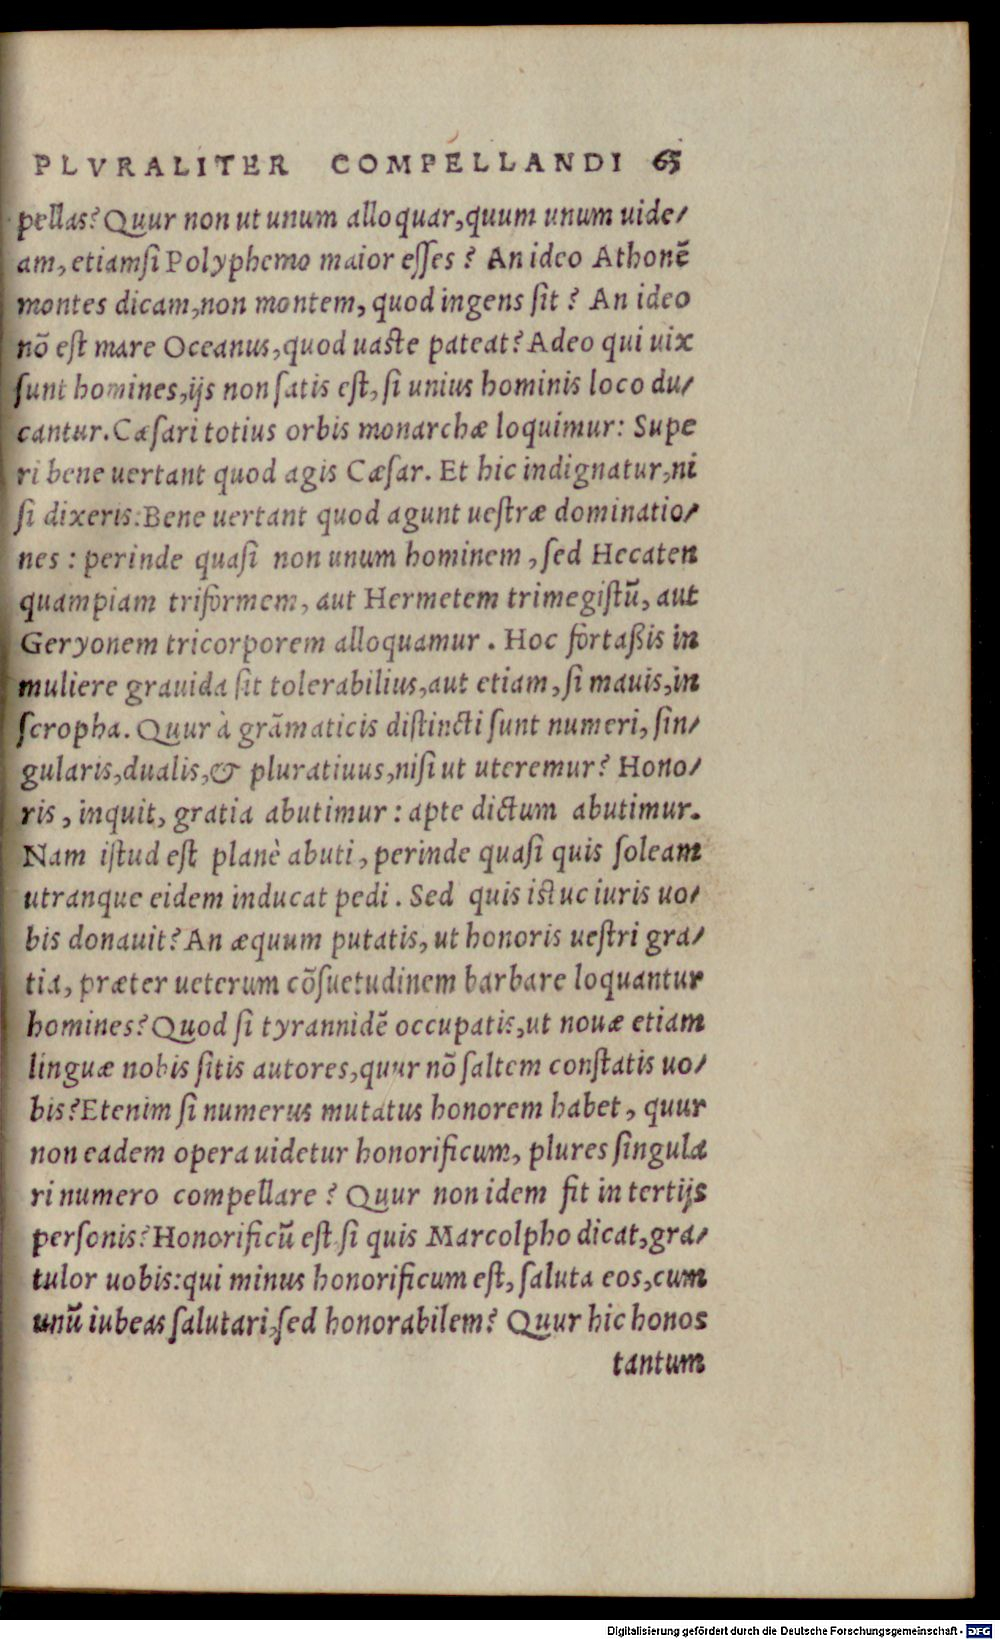 PLVRALITER COMPELLANDI 65
pellas? Quur non ut unum alloquar, quum unum uide/
am, etiamſi Polyphemo maior eſſes? An ideo Athonē
montes dicam, non montem, quod ingens ſit? An ideo
nō eſt mare Oceanus, quod uaſte pateat? Adeo qui uix
ſunt homines, ijs non ſatis eſt, ſi unius hominis loco du/
cantur. Cæſari totius orbis monarchæ loquimur: Supe
ri bene uertant quod agis Cæſar. Et hic indignatur, ni
ſi dixeris: Bene uertant quod agunt ueſtræ dominatio/
nes: perinde quaſi non unum hominem, ſed Hecaten
quampiam triformem, aut Hermetem trimegiſtū, aut
Geryonem tricorporem alloquamur. Hoc fortaßis in
muliere grauida ſit tolerabilius, aut etiam, ſi mauis, in
ſcropha. Quur à grāmaticis diſtincti ſunt numeri, ſin/
gularis, dualis, & pluratiuus, niſi ut uteremur? Hono/
ris, inquit, gratia abutimur: apte dictum abutimur.
Nam iſtud eſt planè abuti, perinde quaſi quis ſoleam
utranque eidem inducat pedi. Sed quis iſtuc iuris uo/
bis donauit? An æquum putatis, ut honoris ueſtri gra/
tia, præter ueterum cōſuetudinem barbare loquantur
homines? Quod ſi tyrannidē occupatis, ut nouæ etiam
linguæ nobis ſitis autores, quur nō ſaltem conſtatis uo/
bis? Etenim ſi numerus mutatus honorem habet, quur
non eadem opera uidetur honorificum, plures ſingula
ri numero compellare? Quur non idem fit in tertijs
perſonis? Honorificū eſt ſi quis Marcolpho dicat, gra/
tulor uobis: qui minus honorificum eſt, ſaluta eos, cum
unū iubeas ſalutari, ſed honorabilem? Quur hic honos
tantum
Digitalisierung gefördert durch die Deutsche Forschungsgemeinschaft - DFG